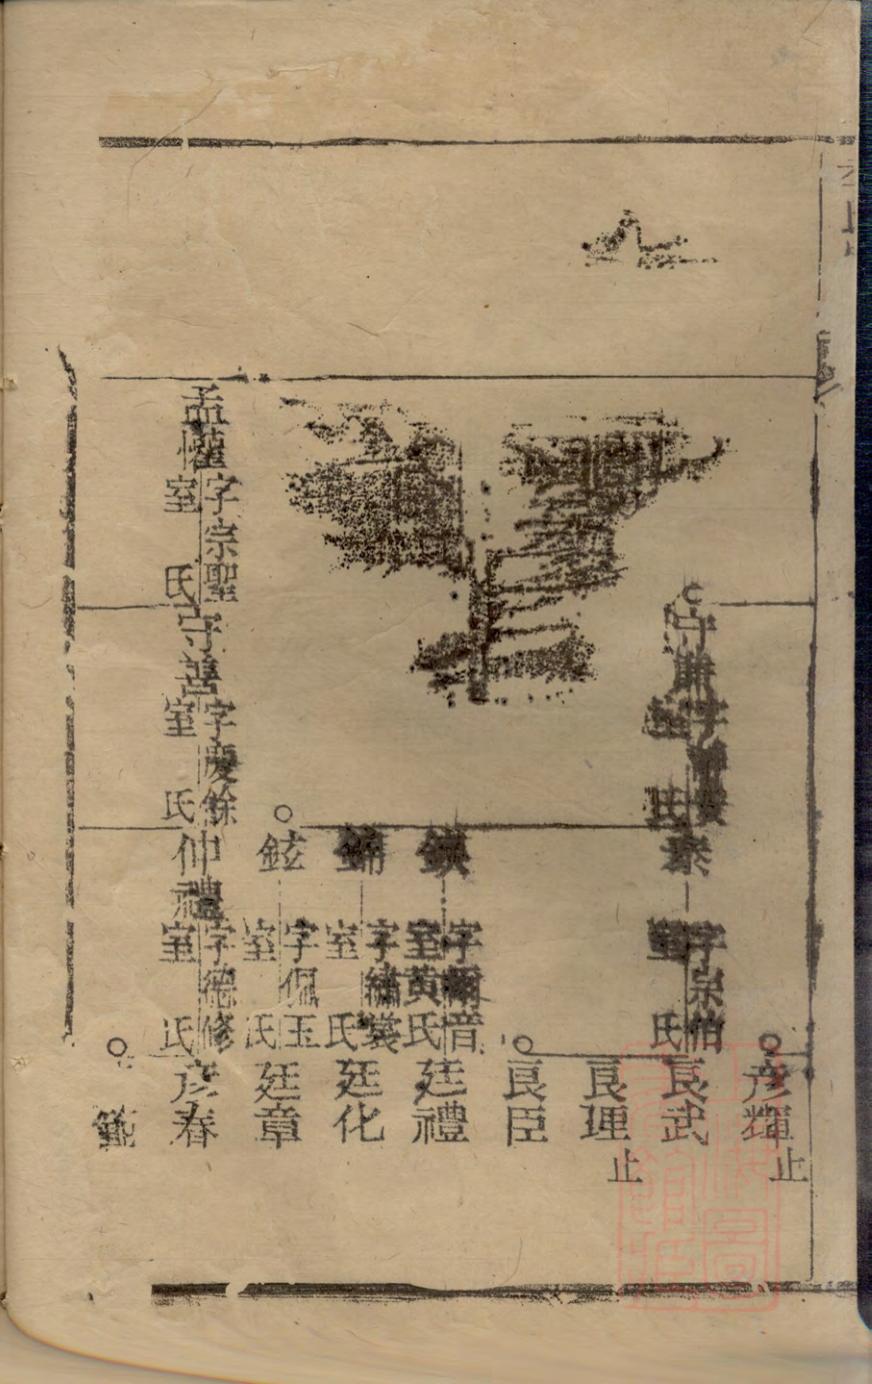 彥輝止
守謙字
室 氏
泰字宗伯
室 氏
良武
良理止
良臣
鍈字爾音
室黃氏
廷禮
鏞字繡裳
室 氏
廷化
鉉字佩玉
室 氏
廷章
孟懽字宗聖
室 氏
守善字慶餘
室 氏
仲禮字德修
室 氏
彥春